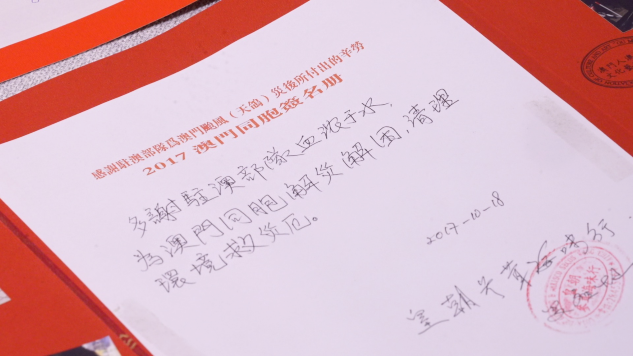 感謝駐澳部隊爲澳門颱風（天鴿）災後所付出的辛勞
2017 澳門同胞簽名册
多謝駐澳部隊血濃于水，
为澳門同胞解災解困，清理
環境救災厄。
2017-10-18